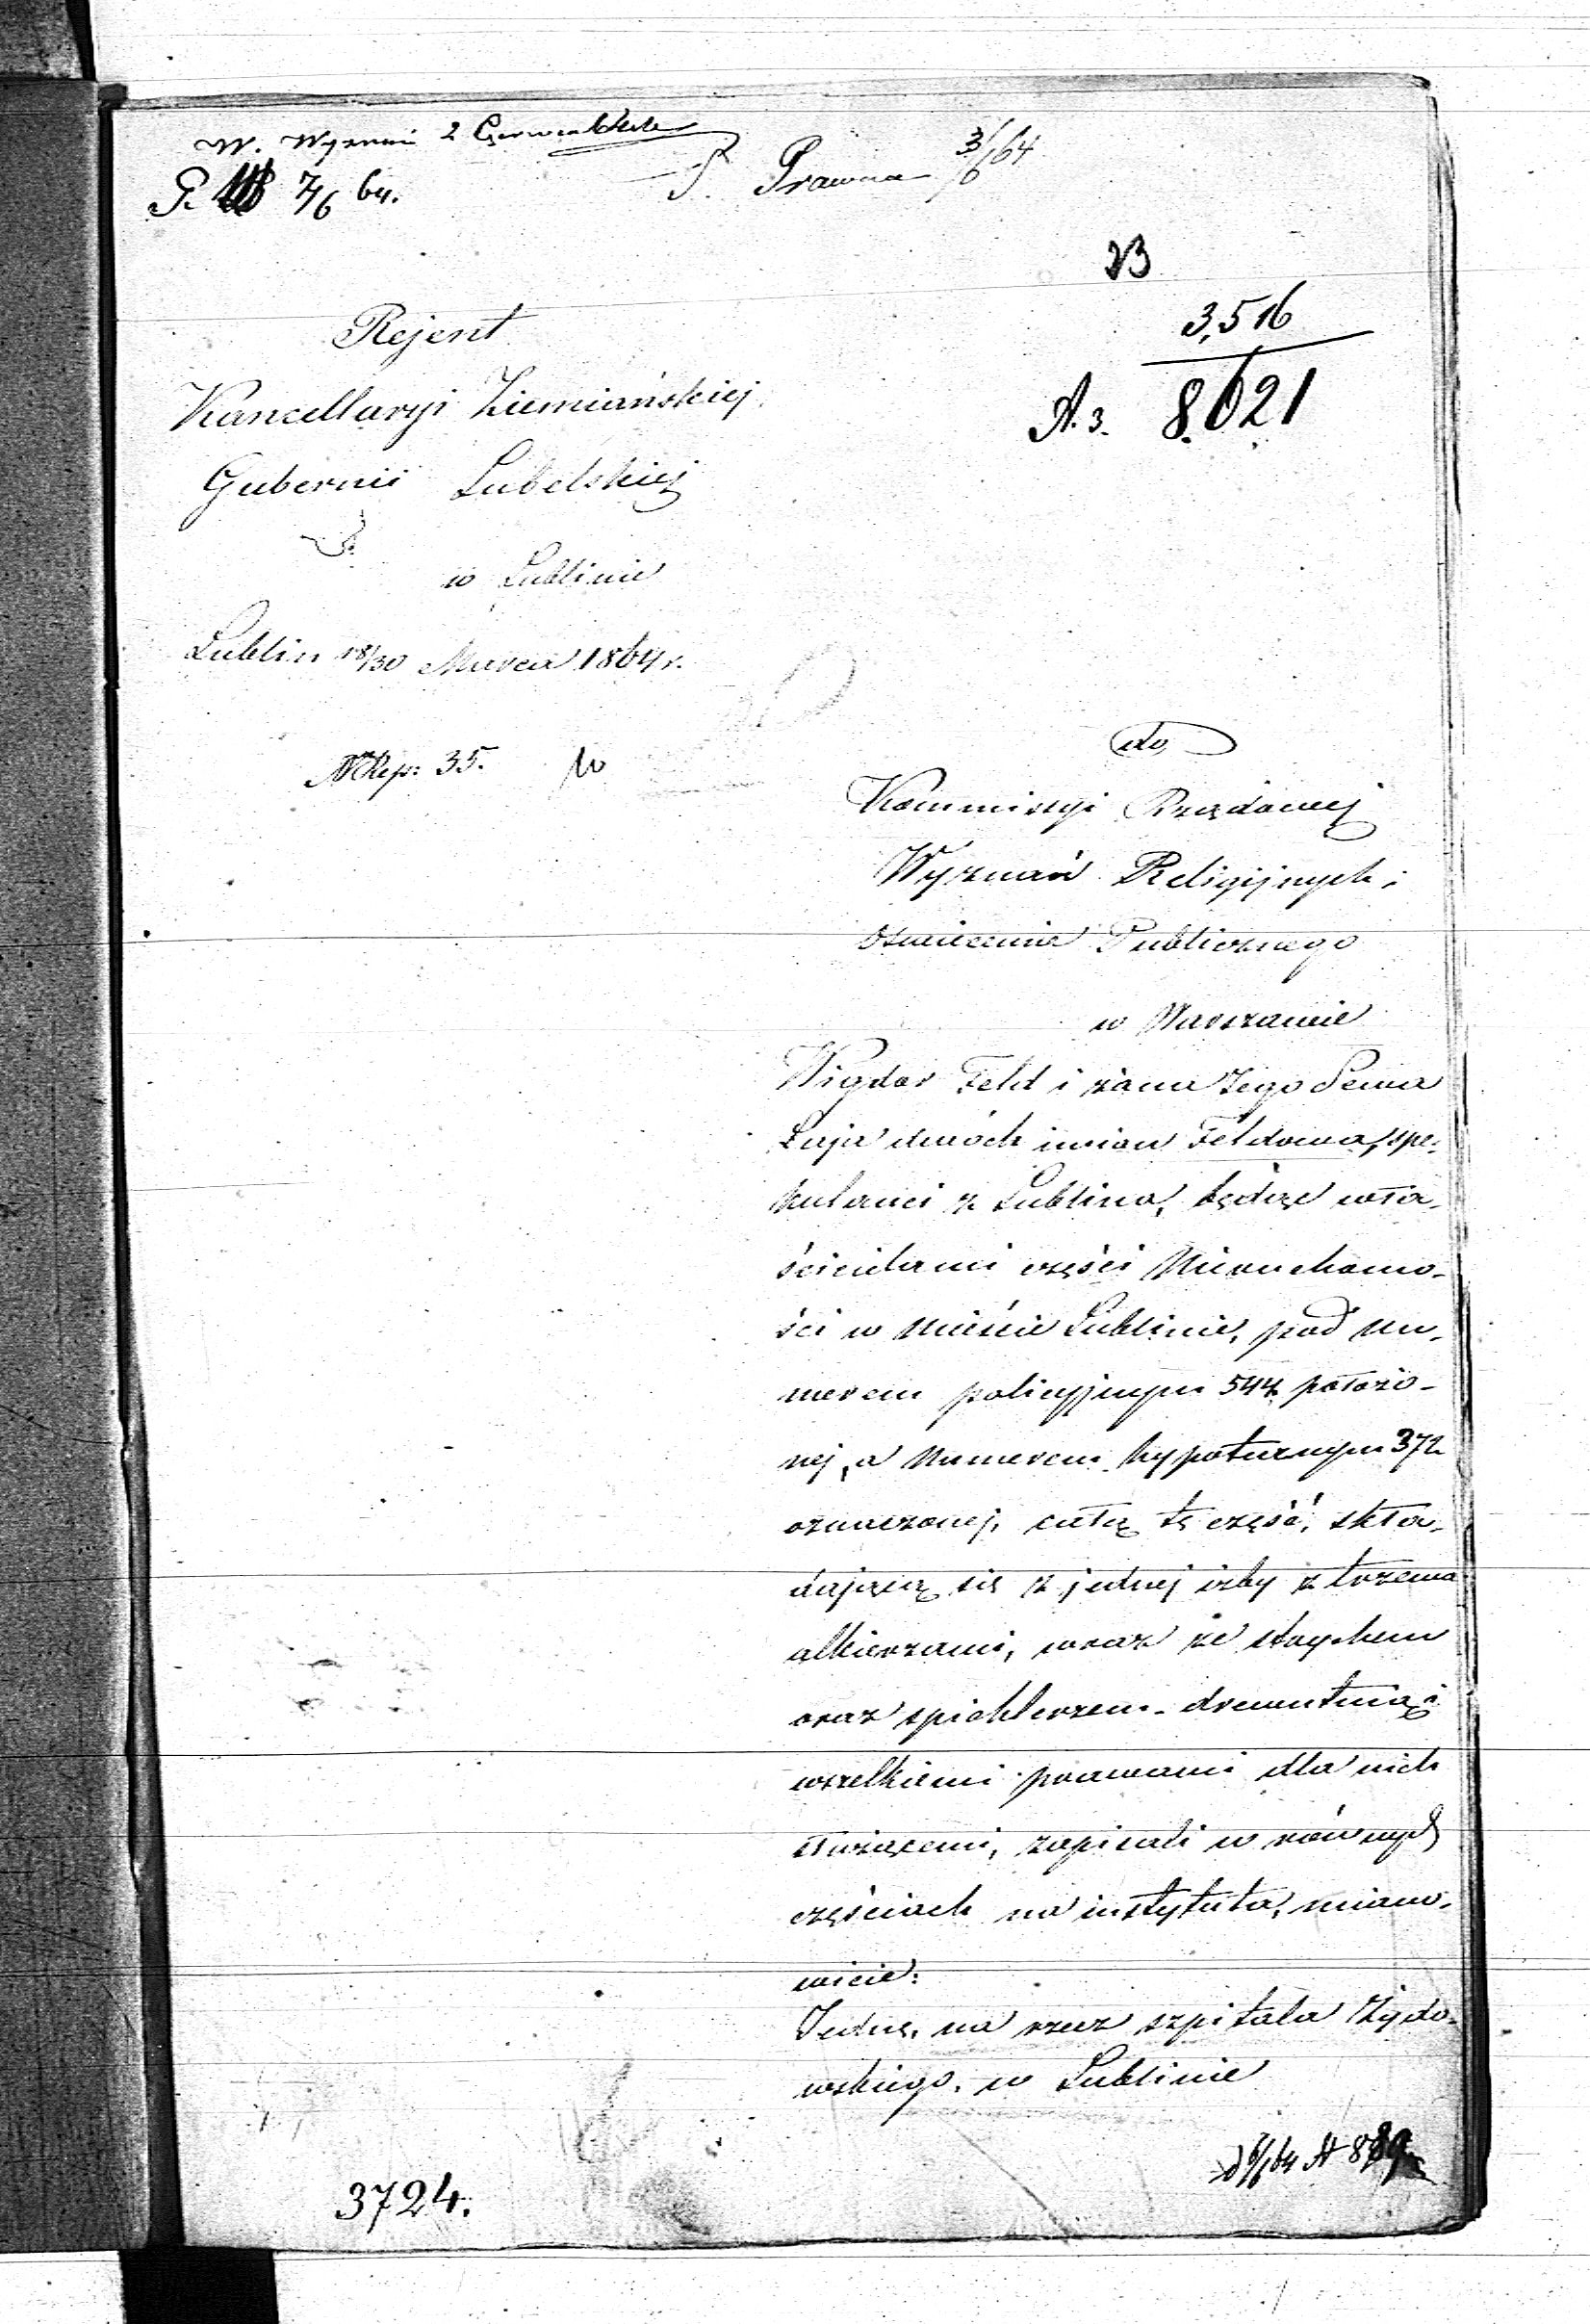 W. Wyznań 2 Czerwca
P. 7/6 64.
P. Prawna 3/6 64
23
3,516
A. 3. 8.621
Rejent
Kancellaryi Ziemiańskiej
Gubernii Lubelskiej
w Lublinie
Lublin 18/30 Marca 1864 r.
N Rep: 35.
do
Kommissyi Rządowej
Wyznań Religijnych i
Oświecenia Publicznego
w Warszawie
Wigdor Feld i żona Jego Perla
Łaja dwóch imion Feldowa, spe-
kulanci z Lublina, będąc wła-
ścicielami części Nieruchomo-
ści w mieście Lublinie, pod nu-
merem policyjnym 544 położo-
nej, a Numerem hypotecznym 372
oznaczonej, całą tę część, skła-
dającą się z jednej izby z trzema
alkierzami, wraz ze strychem
oraz spichlerzem drewutnią i
wszelkiemi prawami dla nich
służącemi, zapisali w równych
częściach na instytuta, miano-
wicie:
Jedną, na rzecz szpitala Żydo-
wskiego, w Lublinie
3724.